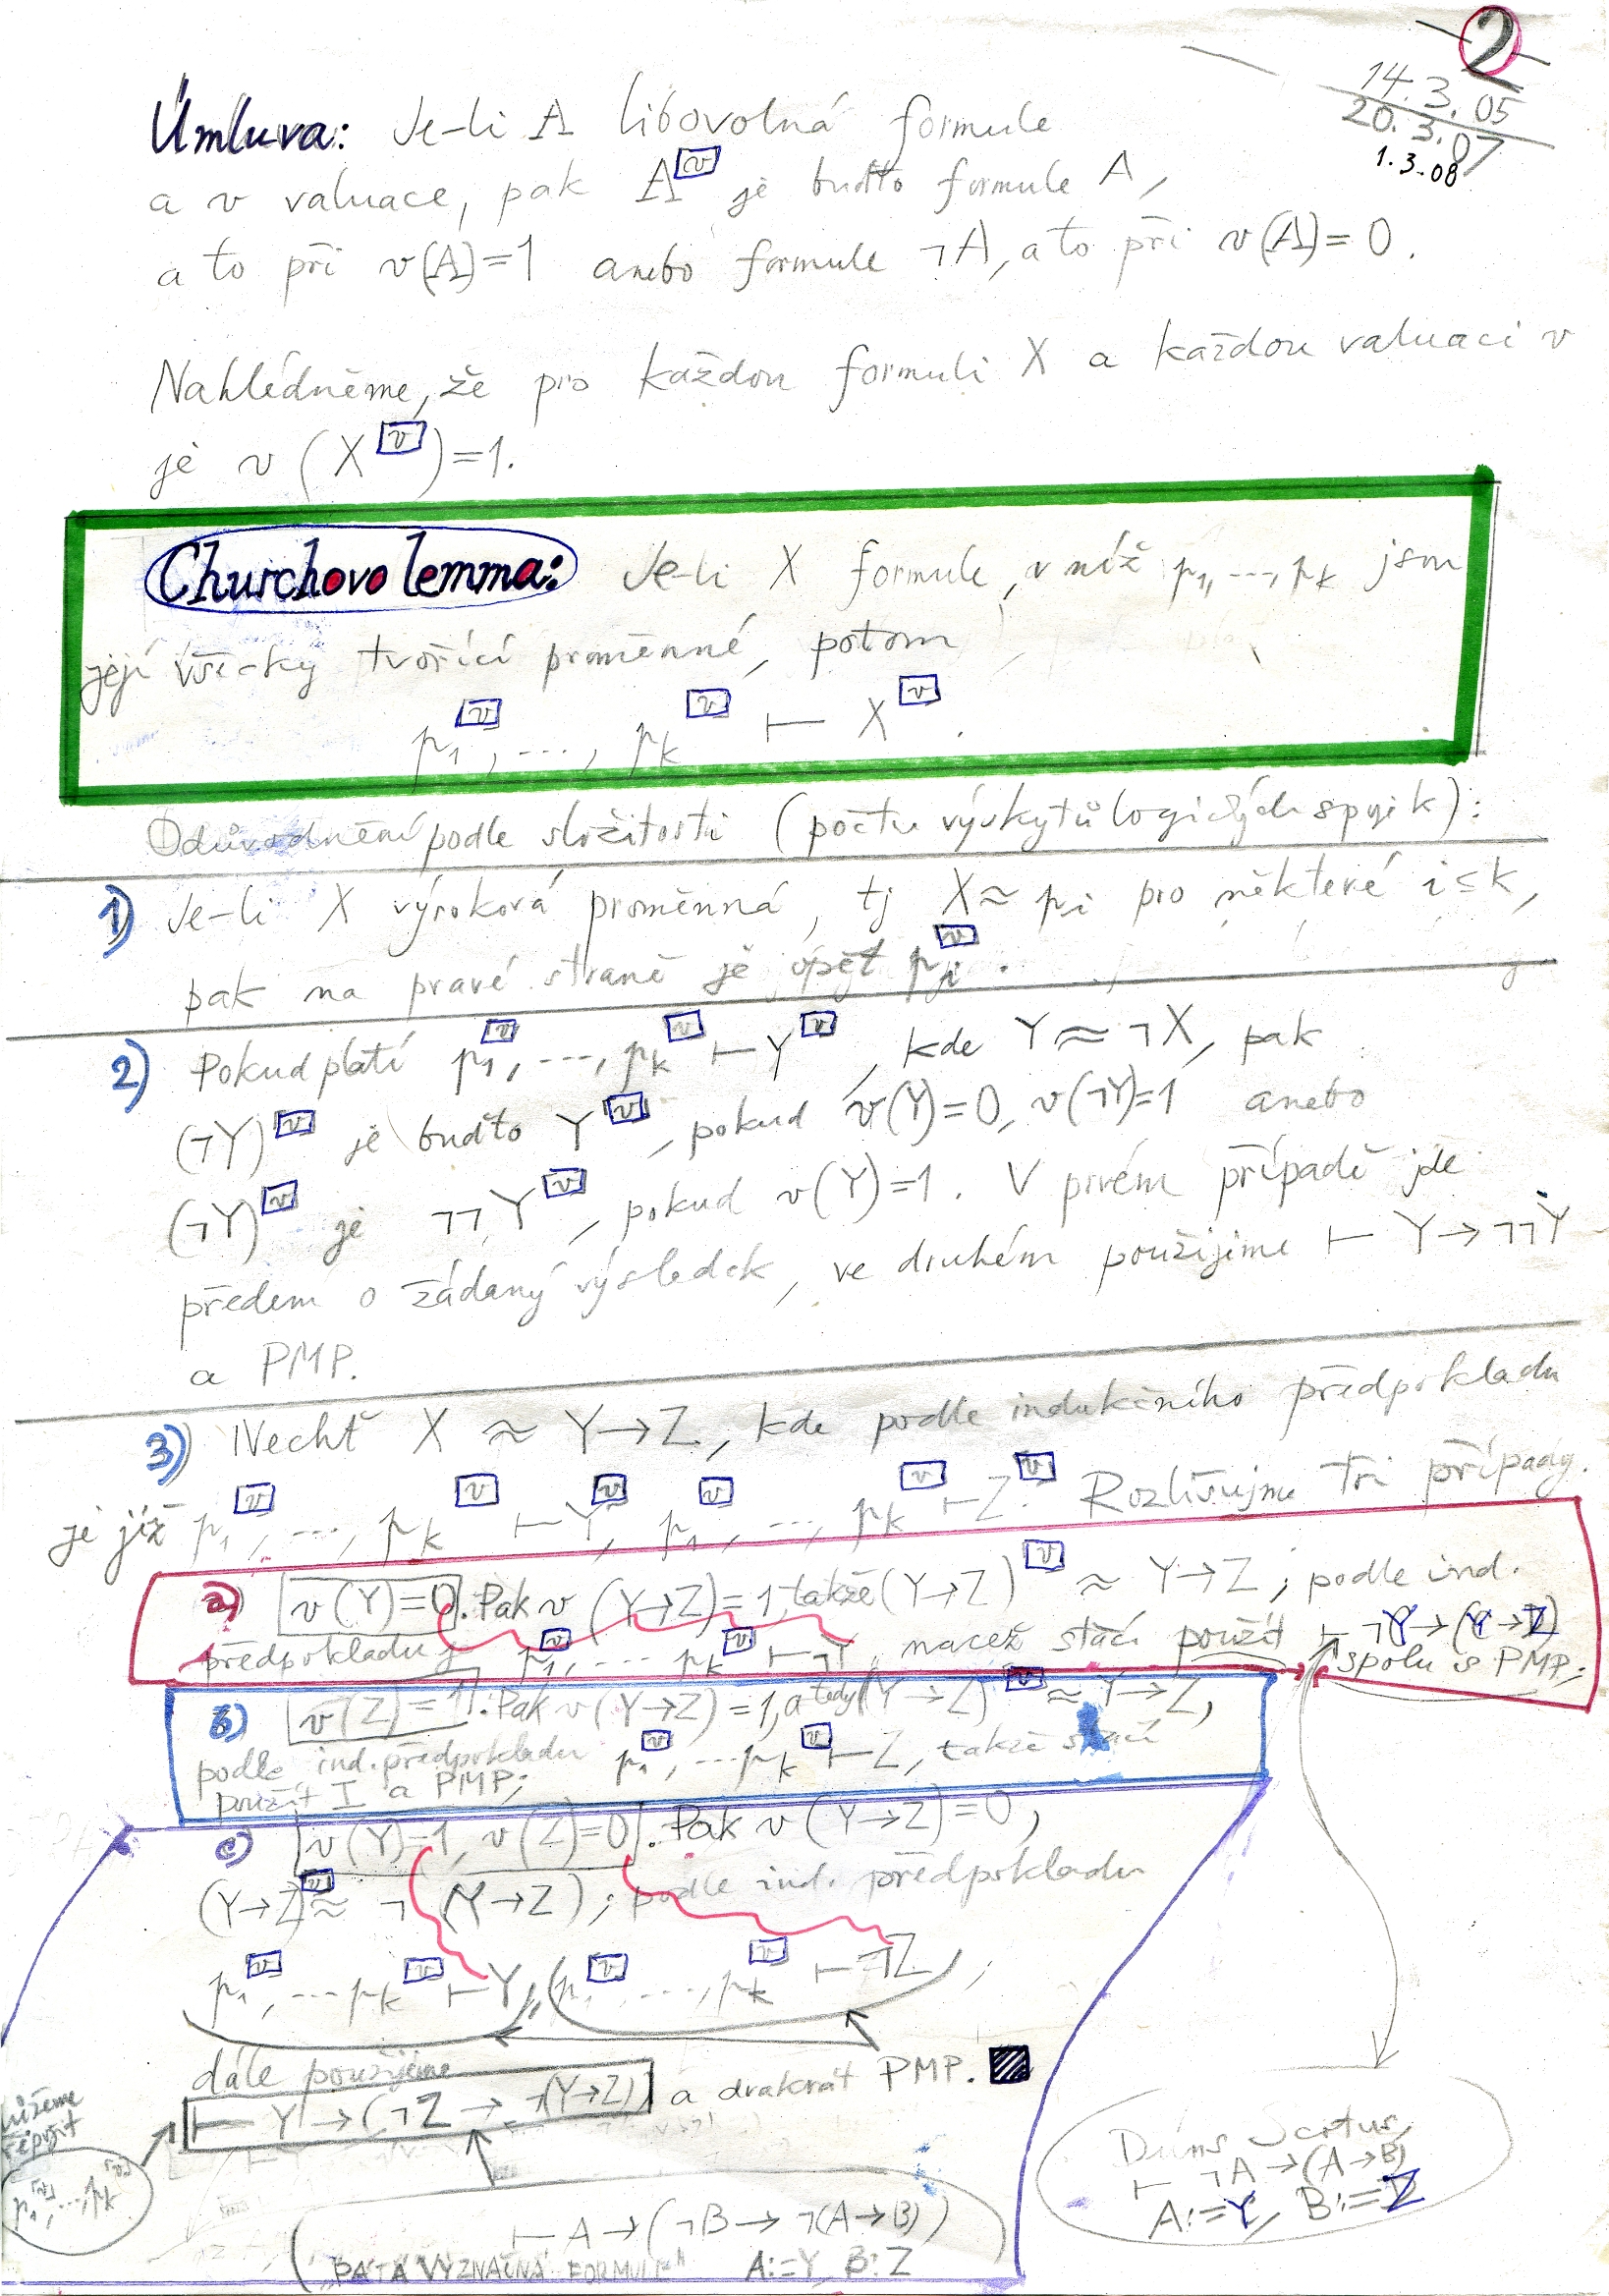 2
14.3.05
20.3.07
1.3.08
Úmluva: Je-li A libovolná formule
a v valuace, pak A^v je buďto formule A,
a to při v(A)=1 anebo formule ¬A, a to při v(A)=0.
Nahlédněme, že pro každou formuli X a každou valuaci v
je v(X^v)=1.
Churchovo lemma: Je-li X formule, v níž p1, ..., pk jsou
její všecky tvořící proměnné, potom
p1^v, ..., pk^v ⊢ X^v.
Odůvodnění podle složitosti (počtu výskytů logických spojek):
1) Je-li X výroková proměnná, tj X≈pi pro některé i≤k,
pak na pravé straně je opět pi^v.
2) Pokud platí p1^v, ..., pk^v ⊢ Y^v, kde Y≈¬X, pak
(¬Y)^v je buďto Y^v, pokud v(Y)=0, v(¬Y)=1 anebo
(¬Y)^v je ¬¬Y^v, pokud v(Y)=1. V prvém případě jde
předem o žádaný výsledek, ve druhém použijeme ⊢ Y→¬¬Y
a PMP.
3) Nechť X ≈ Y→Z, kde podle indukčního předpokladu
je již p1^v, ..., pk^v ⊢ Y^v, p1^v, ..., pk^v ⊢ Z^v. Rozlišujme tři případy.
a) v(Y)=0. Pak v(Y→Z)=1, takže (Y→Z)^v ≈ Y→Z; podle ind.
předpokladu je p1^v, ... pk^v ⊢ ¬Y, načež stačí použít ⊢ ¬Y→(Y→Z)
spolu s PMP.
b) v(Z)=1. Pak v(Y→Z)=1, a tedy (Y→Z)^v ≈ Y→Z,
podle ind. předpokladu p1^v, ... pk^v ⊢ Z, takže stačí
použít I a PMP;
c) v(Y)=1, v(Z)=0. Pak v(Y→Z)=0,
(Y→Z)^v ≈ ¬(Y→Z); podle ind. předpokladu
p1^v, ... pk^v ⊢ Y, p1^v, ..., pk^v ⊢ ¬Z,
dále použijeme
⊢ Y→(¬Z→¬(Y→Z)) a dvakrát PMP.
můžeme
připsit
p1^v, ..., pk^v
⊢ A→(¬B→¬(A→B))
"PÁTÁ VÝZNAČNÁ FORMULE" A:=Y, B:Z
Duns Scotus
⊢ ¬A→(A→B)
A:=Y, B:=Z